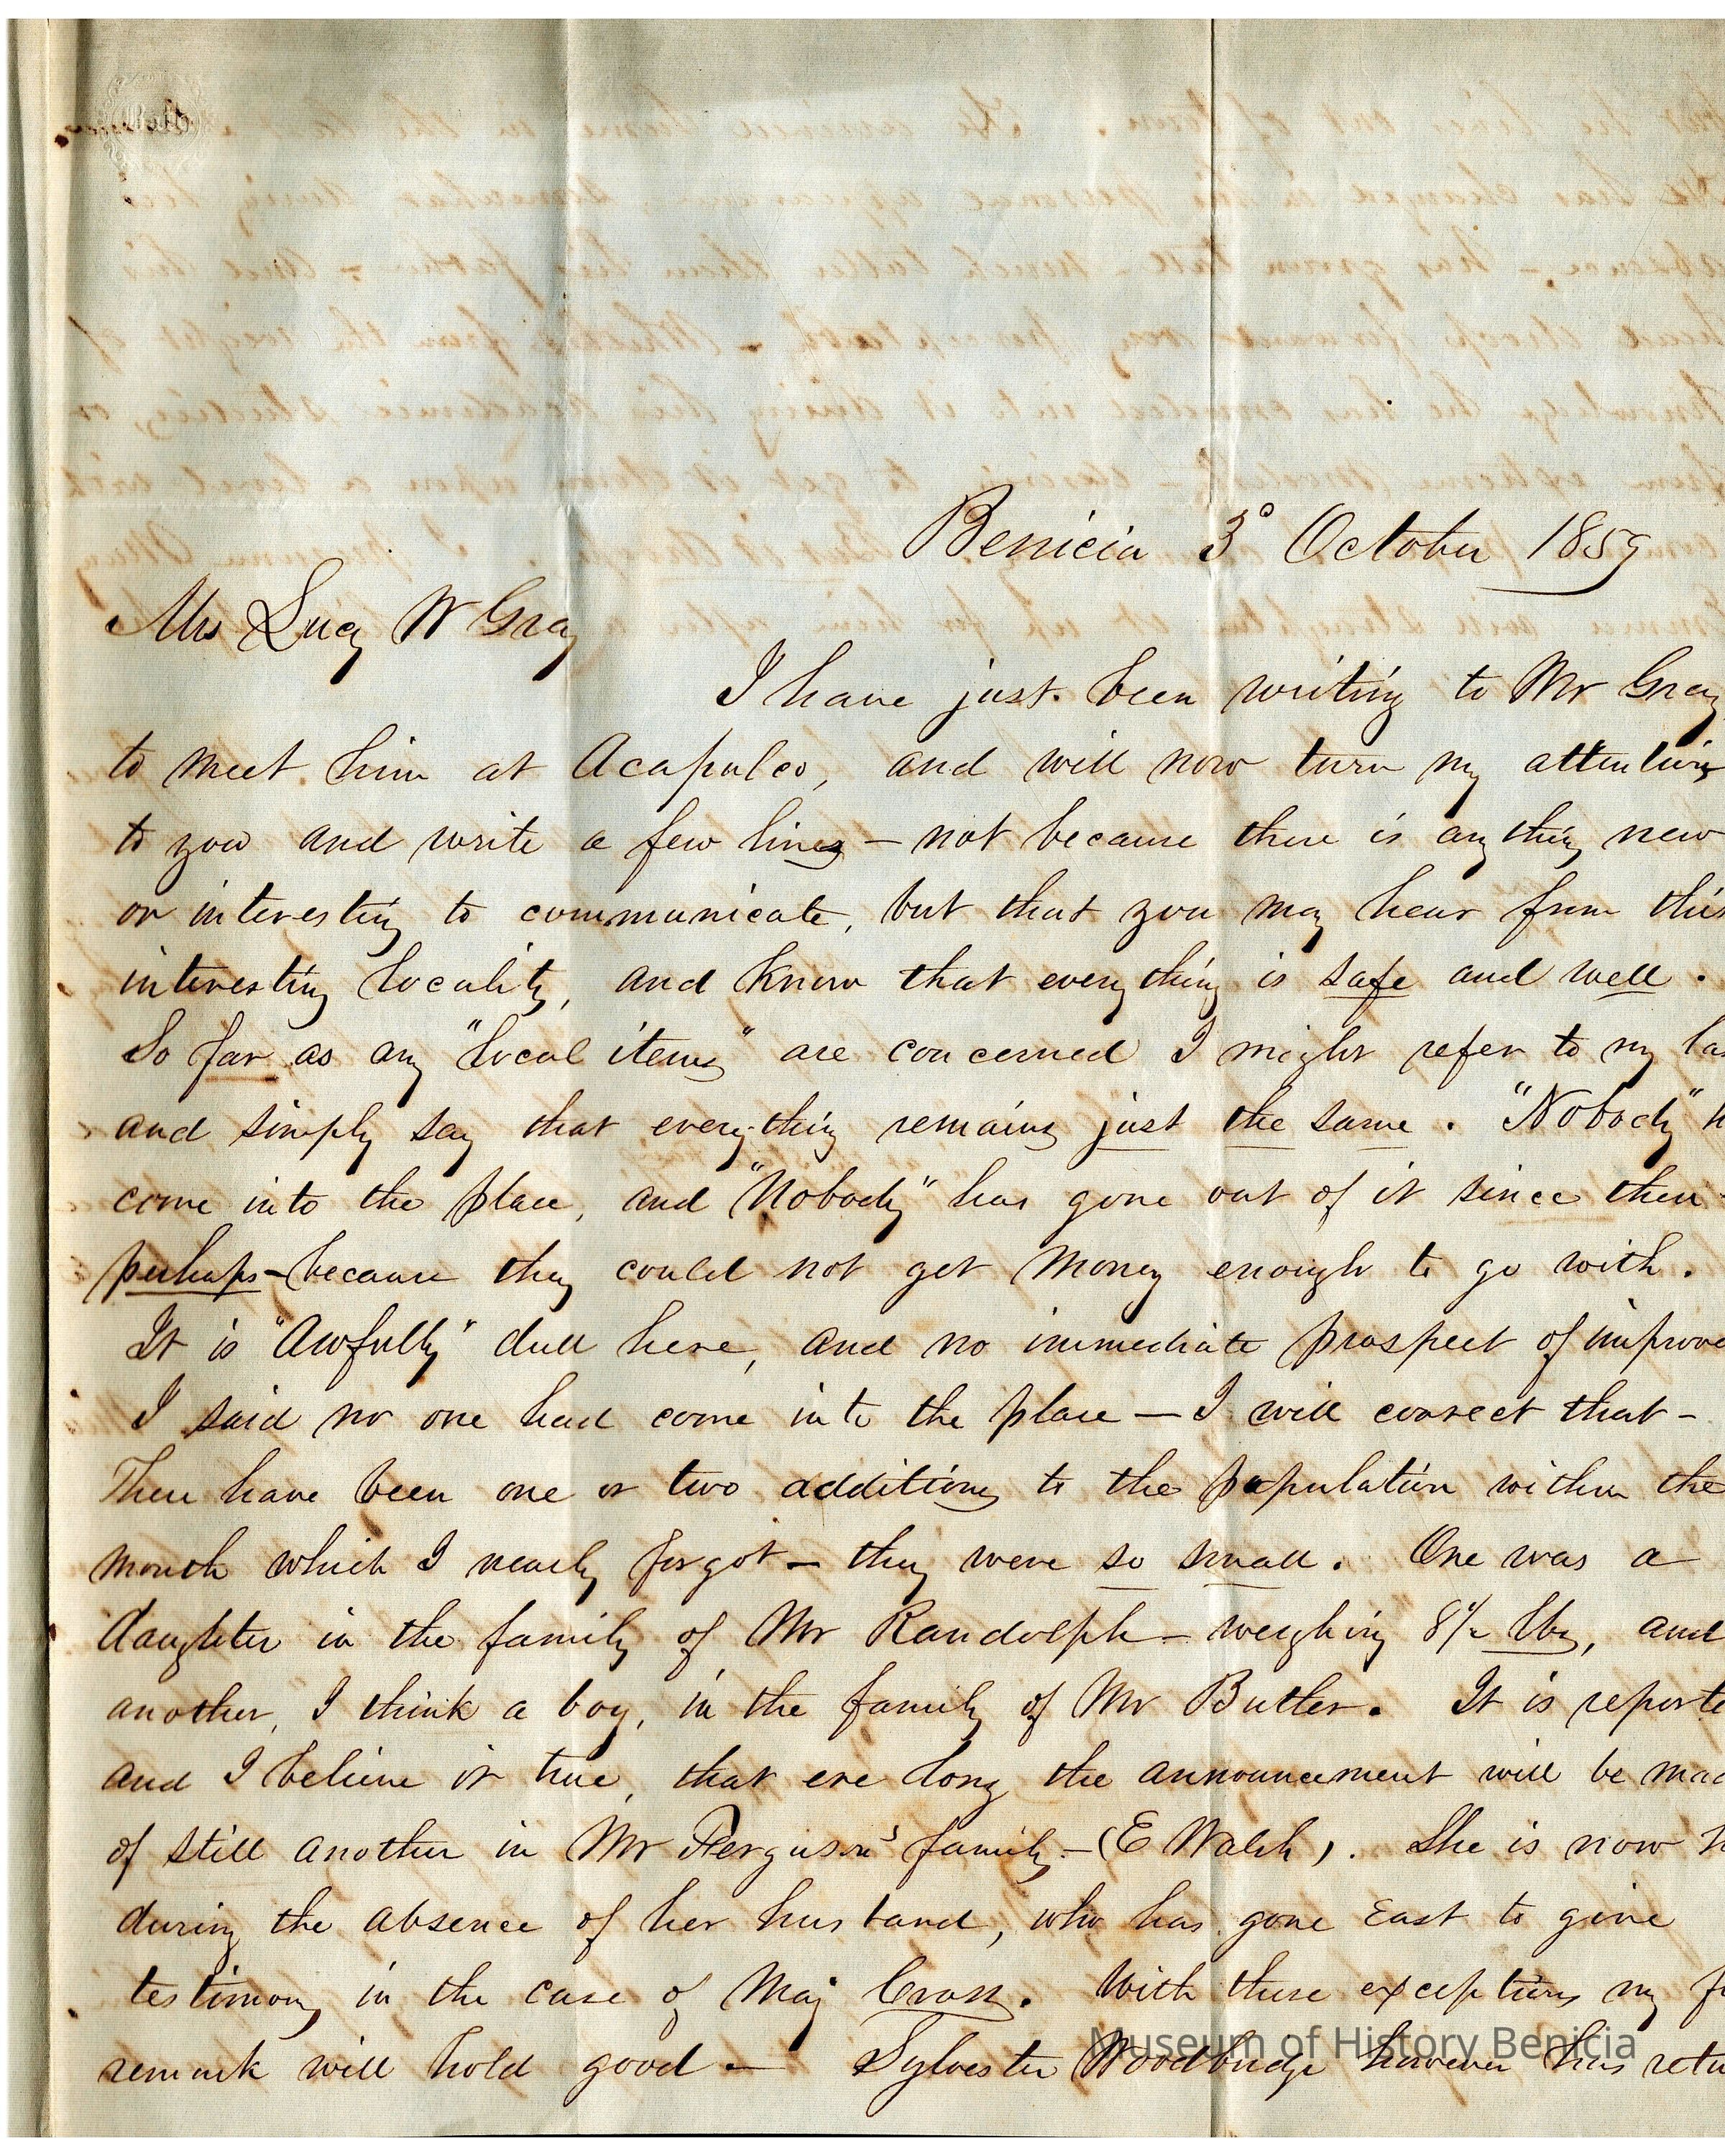 Benicia 3º October 1859
Mrs Lucy W Gray
I have just been writing to Mr Gray
to meet him at Acapulco, and will now turn my attention
to you and write a few lines – not because there is any thing new
or interesting to communicate, but that you may hear from this
interesting locality, and know that every thing is safe and well.
So far as any "local items" are concerned I might refer to my las
and simply say that every thing remains just the same. "Nobody" h
come into the place, and "Nobody" has gone out of it since then
perhaps – because they could not get money enough to go with.
It is "Awfully" dull here, and no immediate prospect of improve
I said no one had come into the place – I will correct that –
There have been one or two additions to the population within the
month which I nearly forgot – they were so small. One was a
daughter in the family of Mr Randolph – weighing 8½ lbs, and
another, I think a boy, in the family of Mr Butler. It is reporte
and I believe it true, that ere long the announcement will be mad
of still another in Mr Ferguson's family – (E Walsh). She is now h
during the absence of her husband, who has gone East to give
testimony in the case of Maj Cross. With these exceptions my fi
remark will hold good – Sylvester Woodbridge however has retu
Museum of History Benicia